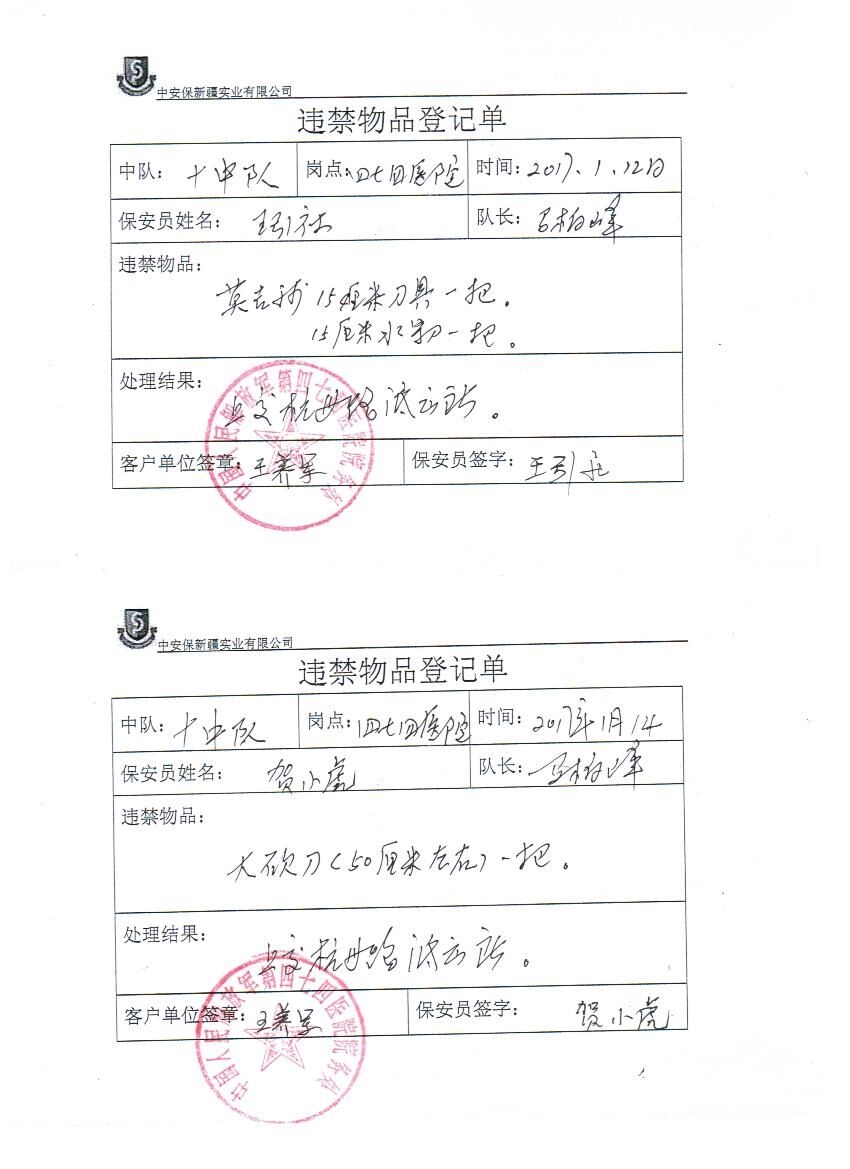 中安保新疆实业有限公司
违禁物品登记单
中队: 十中队 岗点: 四七四医院 时间: 2017.1.12日
保安员姓名: 王引 队长: 马柏峰
违禁物品:
15厘米刀具一把。
15厘米水果刀一把。
处理结果:
上交杭州路
客户单位签章: 王养军 保安员签字: 王引
中国人民解放军第四七四医院院务处
中安保新疆实业有限公司
违禁物品登记单
中队: 十中队 岗点: 四七四医院 时间: 2017年1月14
保安员姓名: 贺小虎 队长: 马柏峰
违禁物品:
大砍刀(50厘米左右)一把。
处理结果:
上交杭州路
客户单位签章: 王养军 保安员签字: 贺小虎
中国人民解放军第四七四医院院务处